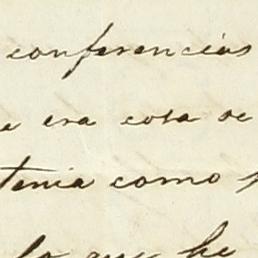 conferencias
e era cosa de
tenia como
lo que he